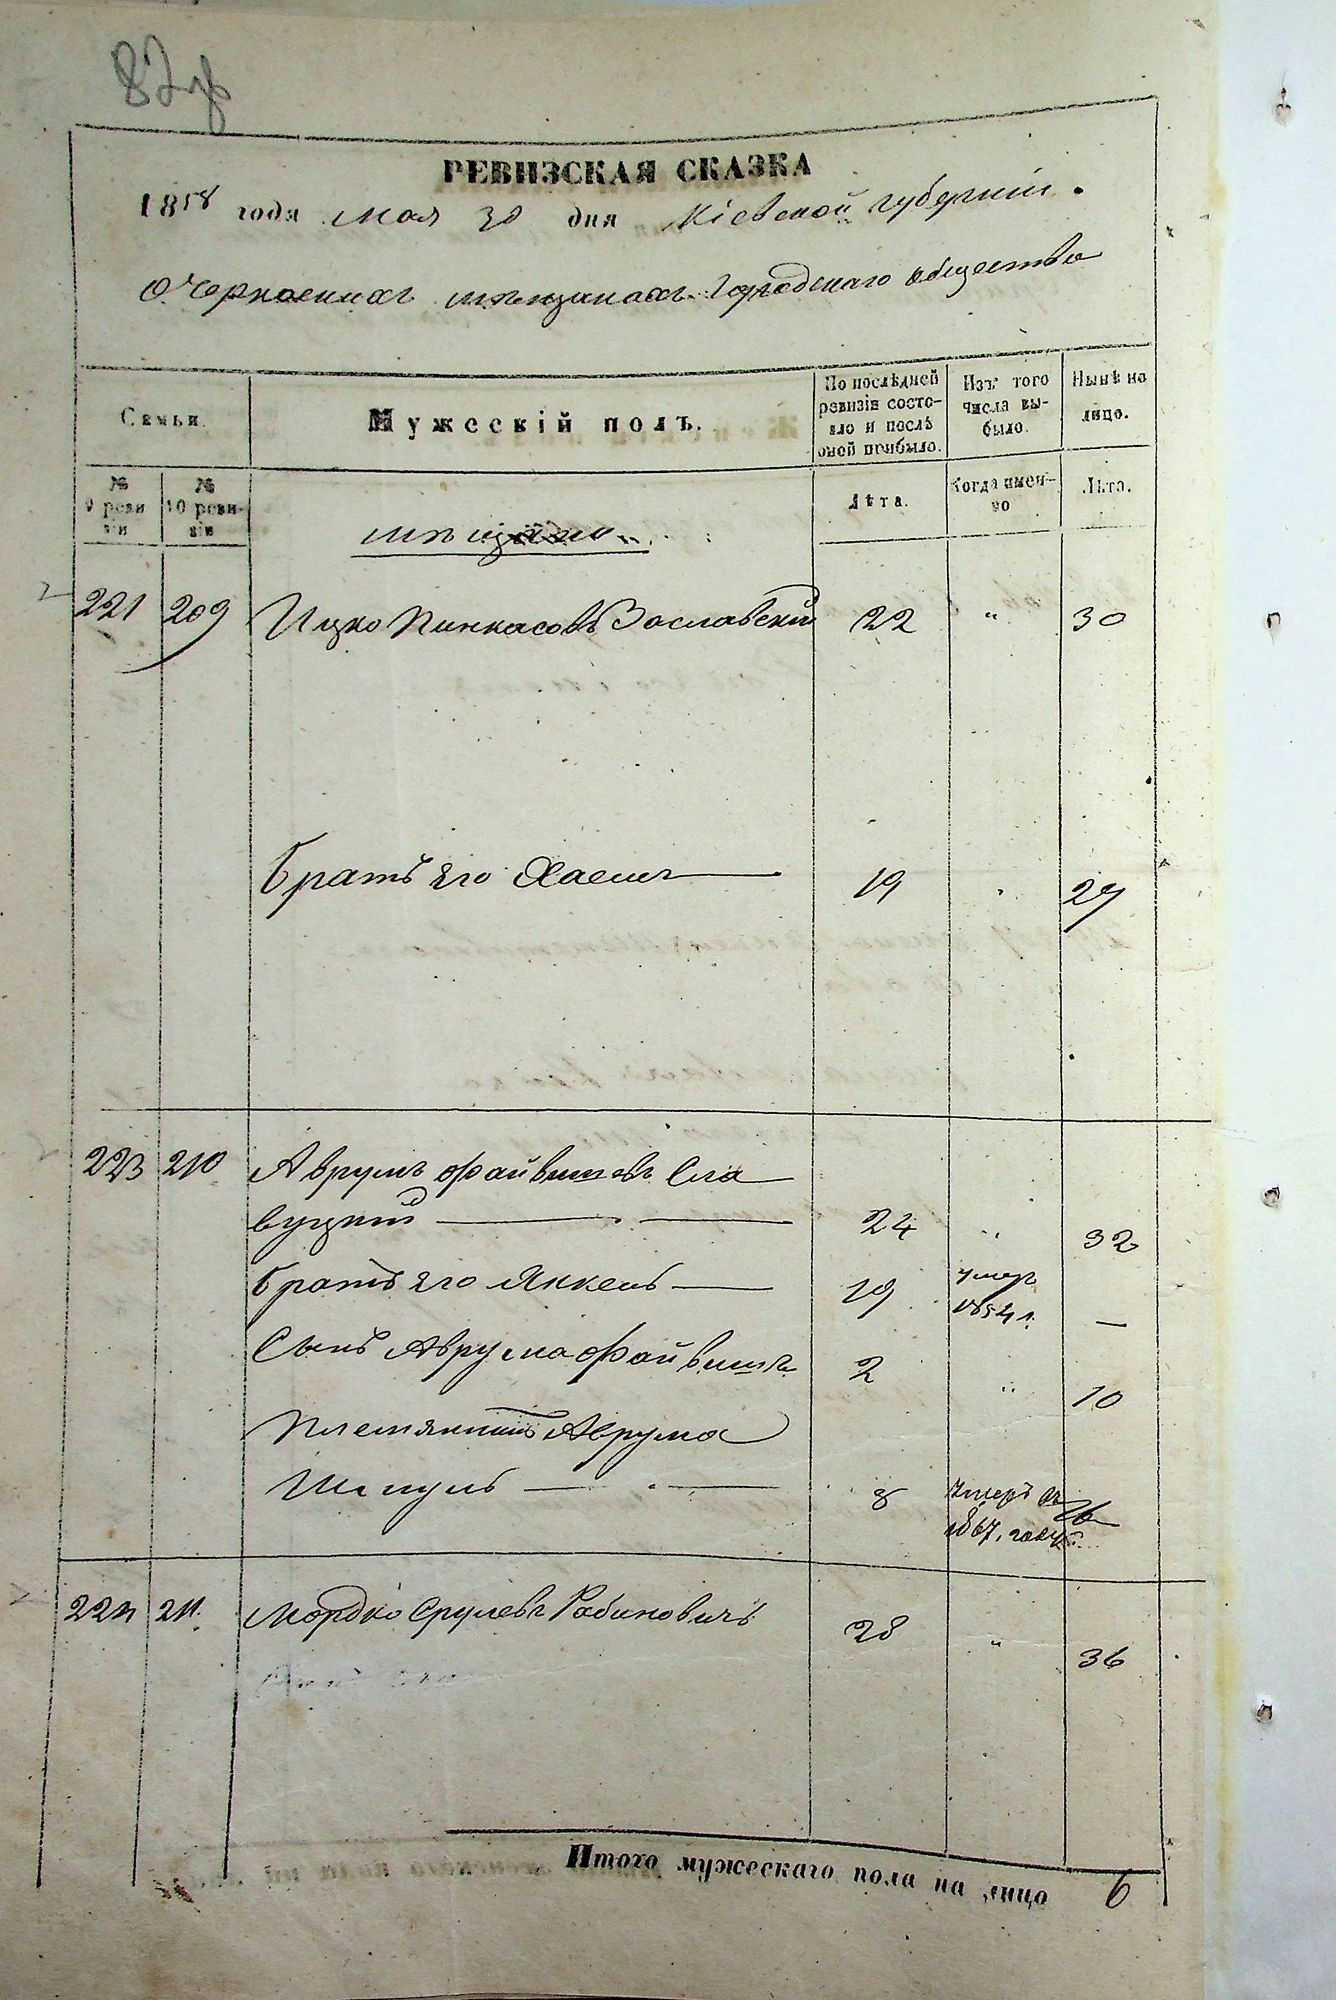 82
РЕВИЗСКАЯ СКАЗКА
1858 года мая 30 дня Кіевской губерніи.
О мѣщанахъ Городскаго общества
Семьи. Мужескій полъ. По послѣдней ревизіи состояло и послѣ оной прибыло. Изъ того числа выбыло. Нынѣ на лицо.
№ 9 ревизіи № 10 ревизіи Лѣта. Когда именно Лѣта.
мѣщане
221 209 Ицко Пинкасовъ Заславскій 22 " 30
братъ его Хаемъ 19 27
223 210 Аврумъ Файвишевъ Сла
вуцкій 24 " 32
братъ его Янкель 19 умеръ 1854 г. —
Сынъ Аврума Файвишъ 2 " 10
племянникъ Аврума
8 Умеръ въ 16
году
224 211. Мордко Срулевъ Рабиновичъ 28 " 36
Итого мужескаго пола на лицо 6